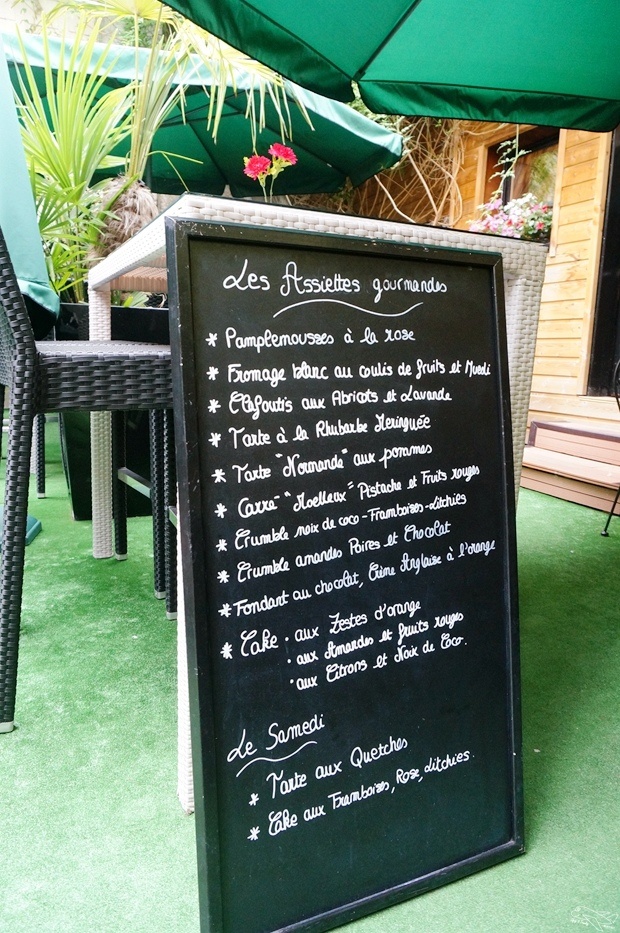 Les Assiettes gourmandes
* Pamplemousses à la rose
* Fromage blanc au coulis de fruits et Muesli
* Clafoutis aux Abricots et Lavande
* Tarte à la Rhubarbe Meringuée
* Tarte "Normande" aux pommes
* Carré "Moelleux" Pistache et Fruits rouges
* Crumble noix de coco-Framboises-Litchies
* Crumble amandes Poires et Chocolat
* Fondant au chocolat, Crème Anglaise à l'orange
* Cake · aux Zestes d'orange
· aux Amandes et fruits rouges
· aux Citrons et Noix de Coco.
Le Samedi
* Tarte aux Quetches
* Cake aux Framboises, Rose, Litchies.